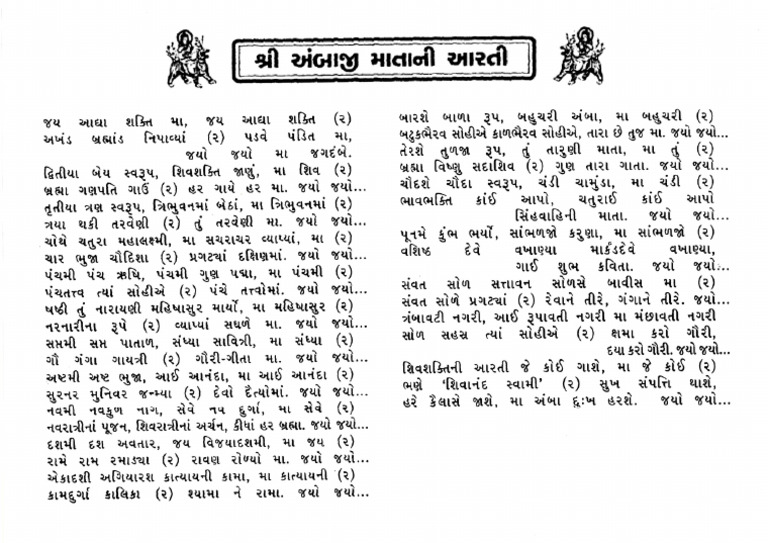 શ્રી અંબાજી માતાની આરતી
જય આદ્યા શક્તિ મા, જય આદ્યા શક્તિ (૨)
અખંડ બ્રહ્માંડ નિપાવ્યાં (૨) પડવે પંડિત મા,
જયો જયો મા જગદંબે.
દ્વિતીયા બેય સ્વરૂપ, શિવશક્તિ જાણું, મા શિવ (૨)
બ્રહ્મા ગણપતિ ગાઉં (૨) હર ગાયે હર મા. જયો જયો...
તૃતીયા ત્રણ સ્વરૂપ, ત્રિભુવનમાં બેઠાં, મા ત્રિભુવનમાં (૨)
ત્રયા થકી તરવેણી (૨) તું તરવેણી મા. જયો જયો...
ચોથે ચતુરા મહાલક્ષ્મી, મા સચરાચર વ્યાપ્યાં, મા (૨)
ચાર ભુજા ચૌદિશા (૨) પ્રગટ્યાં દક્ષિણમાં. જયો જયો...
પંચમી પંચ ઋષિ, પંચમી ગુણ પદ્મા, મા પંચમી (૨)
પંચતત્ત્વ ત્યાં સોહીએ (૨) પંચે તત્ત્વોમાં. જયો જયો...
ષષ્ઠી તું નારાયણી મહિષાસુર માર્યો, મા મહિષાસુર (૨)
નરનારીના રૂપે (૨) વ્યાપ્યાં સઘળે મા. જયો જયો...
સપ્તમી સપ્ત પાતાળ, સંધ્યા સાવિત્રી, મા સંધ્યા (૨)
ગૌ ગંગા ગાયત્રી (૨) ગૌરી-ગીતા મા. જયો જયો...
અષ્ટમી અષ્ટ ભુજા, આઈ આનંદા, મા આઈ આનંદા (૨)
સુરનર મુનિવર જન્મ્યા (૨) દેવો દૈત્યોમાં. જયો જયો...
નવમી નવકુળ નાગ, સેવે નવ દુર્ગા, મા સેવે (૨)
નવરાત્રીનાં પૂજન, શિવરાત્રીનાં અર્ચન, કીધાં હર બ્રહ્મા. જયો જયો...
દશમી દશ અવતાર, જય વિજયાદશમી, મા જય (૨)
રામે રામ રમાડ્યા (૨) રાવણ રોળ્યો મા. જયો જયો...
એકાદશી અગિયારશ કાત્યાયની કામા, મા કાત્યાયની (૨)
કામદુર્ગા કાલિકા (૨) શ્યામા ને રામા. જયો જયો...
બારશે બાળા રૂપ, બહુચરી અંબા, મા બહુચરી (૨)
બટુકભૈરવ સોહીએ કાળભૈરવ સોહીએ, તારા છે તુજ મા. જયો જયો...
તેરશે તુળજા રૂપ, તું તારુણી માતા, મા તું (૨)
બ્રહ્મા વિષ્ણુ સદાશિવ (૨) ગુણ તારા ગાતા. જયો જયો...
ચૌદશે ચૌદા સ્વરૂપ, ચંડી ચામુંડા, મા ચંડી (૨)
ભાવભક્તિ કાંઈ આપો, ચતુરાઈ કાંઈ આપો
સિંહવાહિની માતા. જયો જયો...
પૂનમે કુંભ ભર્યો, સાંભળજો કરુણા, મા સાંભળજો (૨)
વશિષ્ઠ દેવે વખાણ્યા માર્કંડદેવે વખાણ્યા,
ગાઈ શુભ કવિતા. જયો જયો...
સંવત સોળ સત્તાવન સોળસે બાવીસ મા (૨)
સંવત સોળે પ્રગટ્યાં (૨) રેવાને તીરે, ગંગાને તીરે. જયો જયો...
ત્રંબાવટી નગરી, આઈ રૂપાવતી નગરી મા મંછાવતી નગરી
સોળ સહસ્ર ત્યાં સોહીએ (૨) ક્ષમા કરો ગૌરી,
દયા કરો ગૌરી. જયો જયો...
શિવશક્તિની આરતી જે કોઈ ગાશે, મા જે કોઈ (૨)
ભણે ‘શિવાનંદ સ્વામી’ (૨) સુખ સંપત્તિ થાશે,
હરે કૈલાસે જાશે, મા અંબા દુઃખ હરશે. જયો જયો...